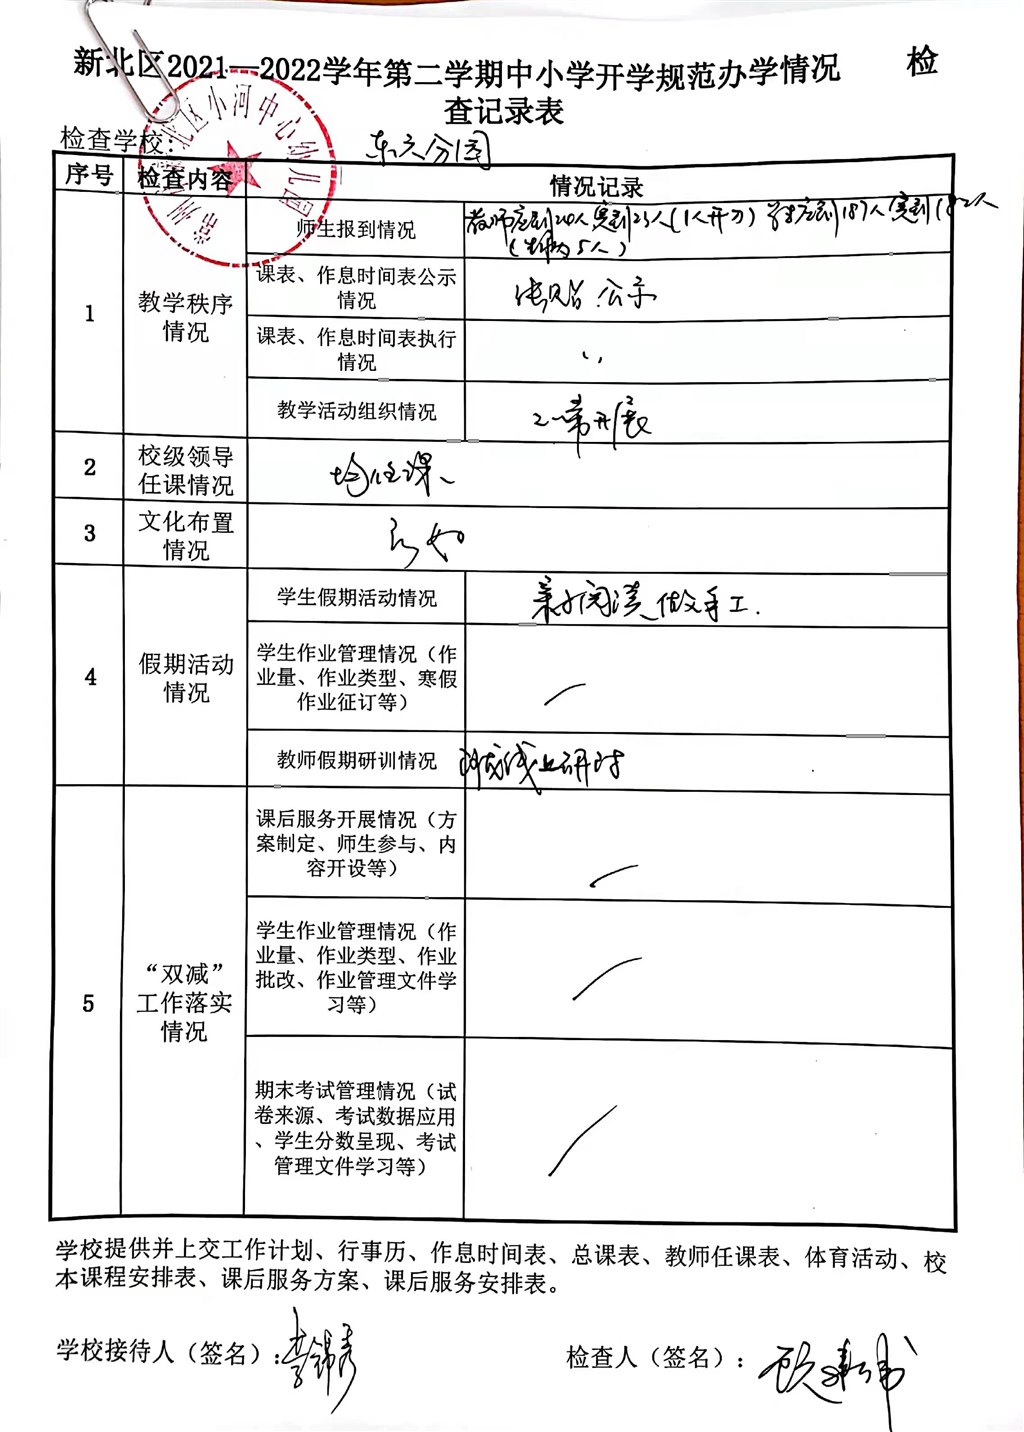 新北区2021—2022学年第二学期中小学开学规范办学情况 检
查记录表
检查学校：
东六分园
序号
检查内容
情况记录
1
教学秩序
情况
师生报到情况
教师应到24人实到23人(1人开刀) 学生应到187人 实到182人
(生病为5人)
课表、作息时间表公示
情况
张贴公示
课表、作息时间表执行
情况
教学活动组织情况
正常开展
2
校级领导
任课情况
均任课、
3
文化布置
情况
良好
4
假期活动
情况
学生假期活动情况
亲子阅读 做手工.
学生作业管理情况（作
业量、作业类型、寒假
作业征订等）
教师假期研训情况
线上研讨
5
“双减”
工作落实
情况
课后服务开展情况（方
案制定、师生参与、内
容开设等）
学生作业管理情况（作
业量、作业类型、作业
批改、作业管理文件学
习等）
期末考试管理情况（试
卷来源、考试数据应用
、学生分数呈现、考试
管理文件学习等）
学校提供并上交工作计划、行事历、作息时间表、总课表、教师任课表、体育活动、校
本课程安排表、课后服务方案、课后服务安排表。
学校接待人（签名）：李锦秀
检查人（签名）：
常州市新北区小河中心幼儿园